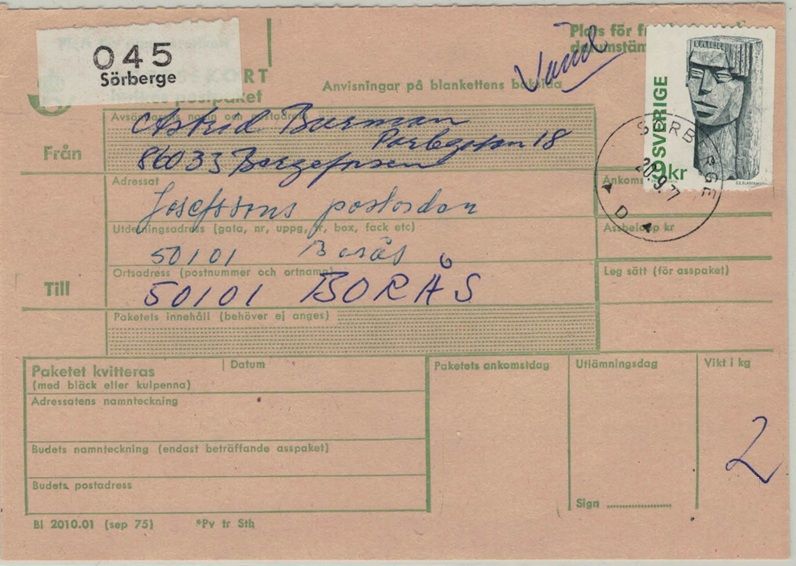 045
Sörberge
KORT
postpaket
Anvisningar på blankettens baksida
Plats för
SVERIGE
9kr
SÖRBERGE
20.9.77
Från
Astrid Burman
Parkgatan 18
86033 Bergeforsen
Adressat
Josefssons postorder
Ankoms
Utdelningsadress (gata, nr, uppg, tr, box, fack etc)
50101 Borås
Assbelopp kr
Till
Ortsadress (postnummer och ortnamn)
50101 BORÅS
Leg sätt (för asspaket)
Paketets innehåll (behöver ej anges)
Paketet kvitteras
(med bläck eller kulpenna)
Datum
Paketets ankomstdag
Utlämningsdag
Vikt i kg
Adressatens namnteckning
2
Budets namnteckning (endast beträffande asspaket)
Budets postadress
Sign
Bl 2010.01 (sep 75) *Pv tr Sth